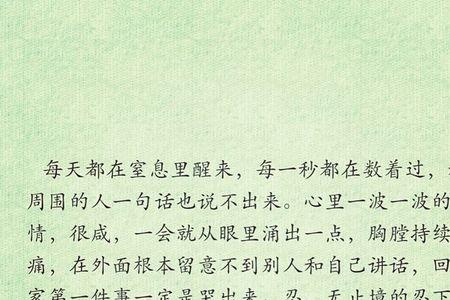 每天都在窒息里醒来，每一秒都在数着过，
周围的人一句话也说不出来。心里一波一波的
情，很咸，一会就从眼里涌出一点，胸膛持续
痛，在外面根本留意不到别人和自己讲话，回
家第一件事一定是哭出来。忍，无止境的忍下